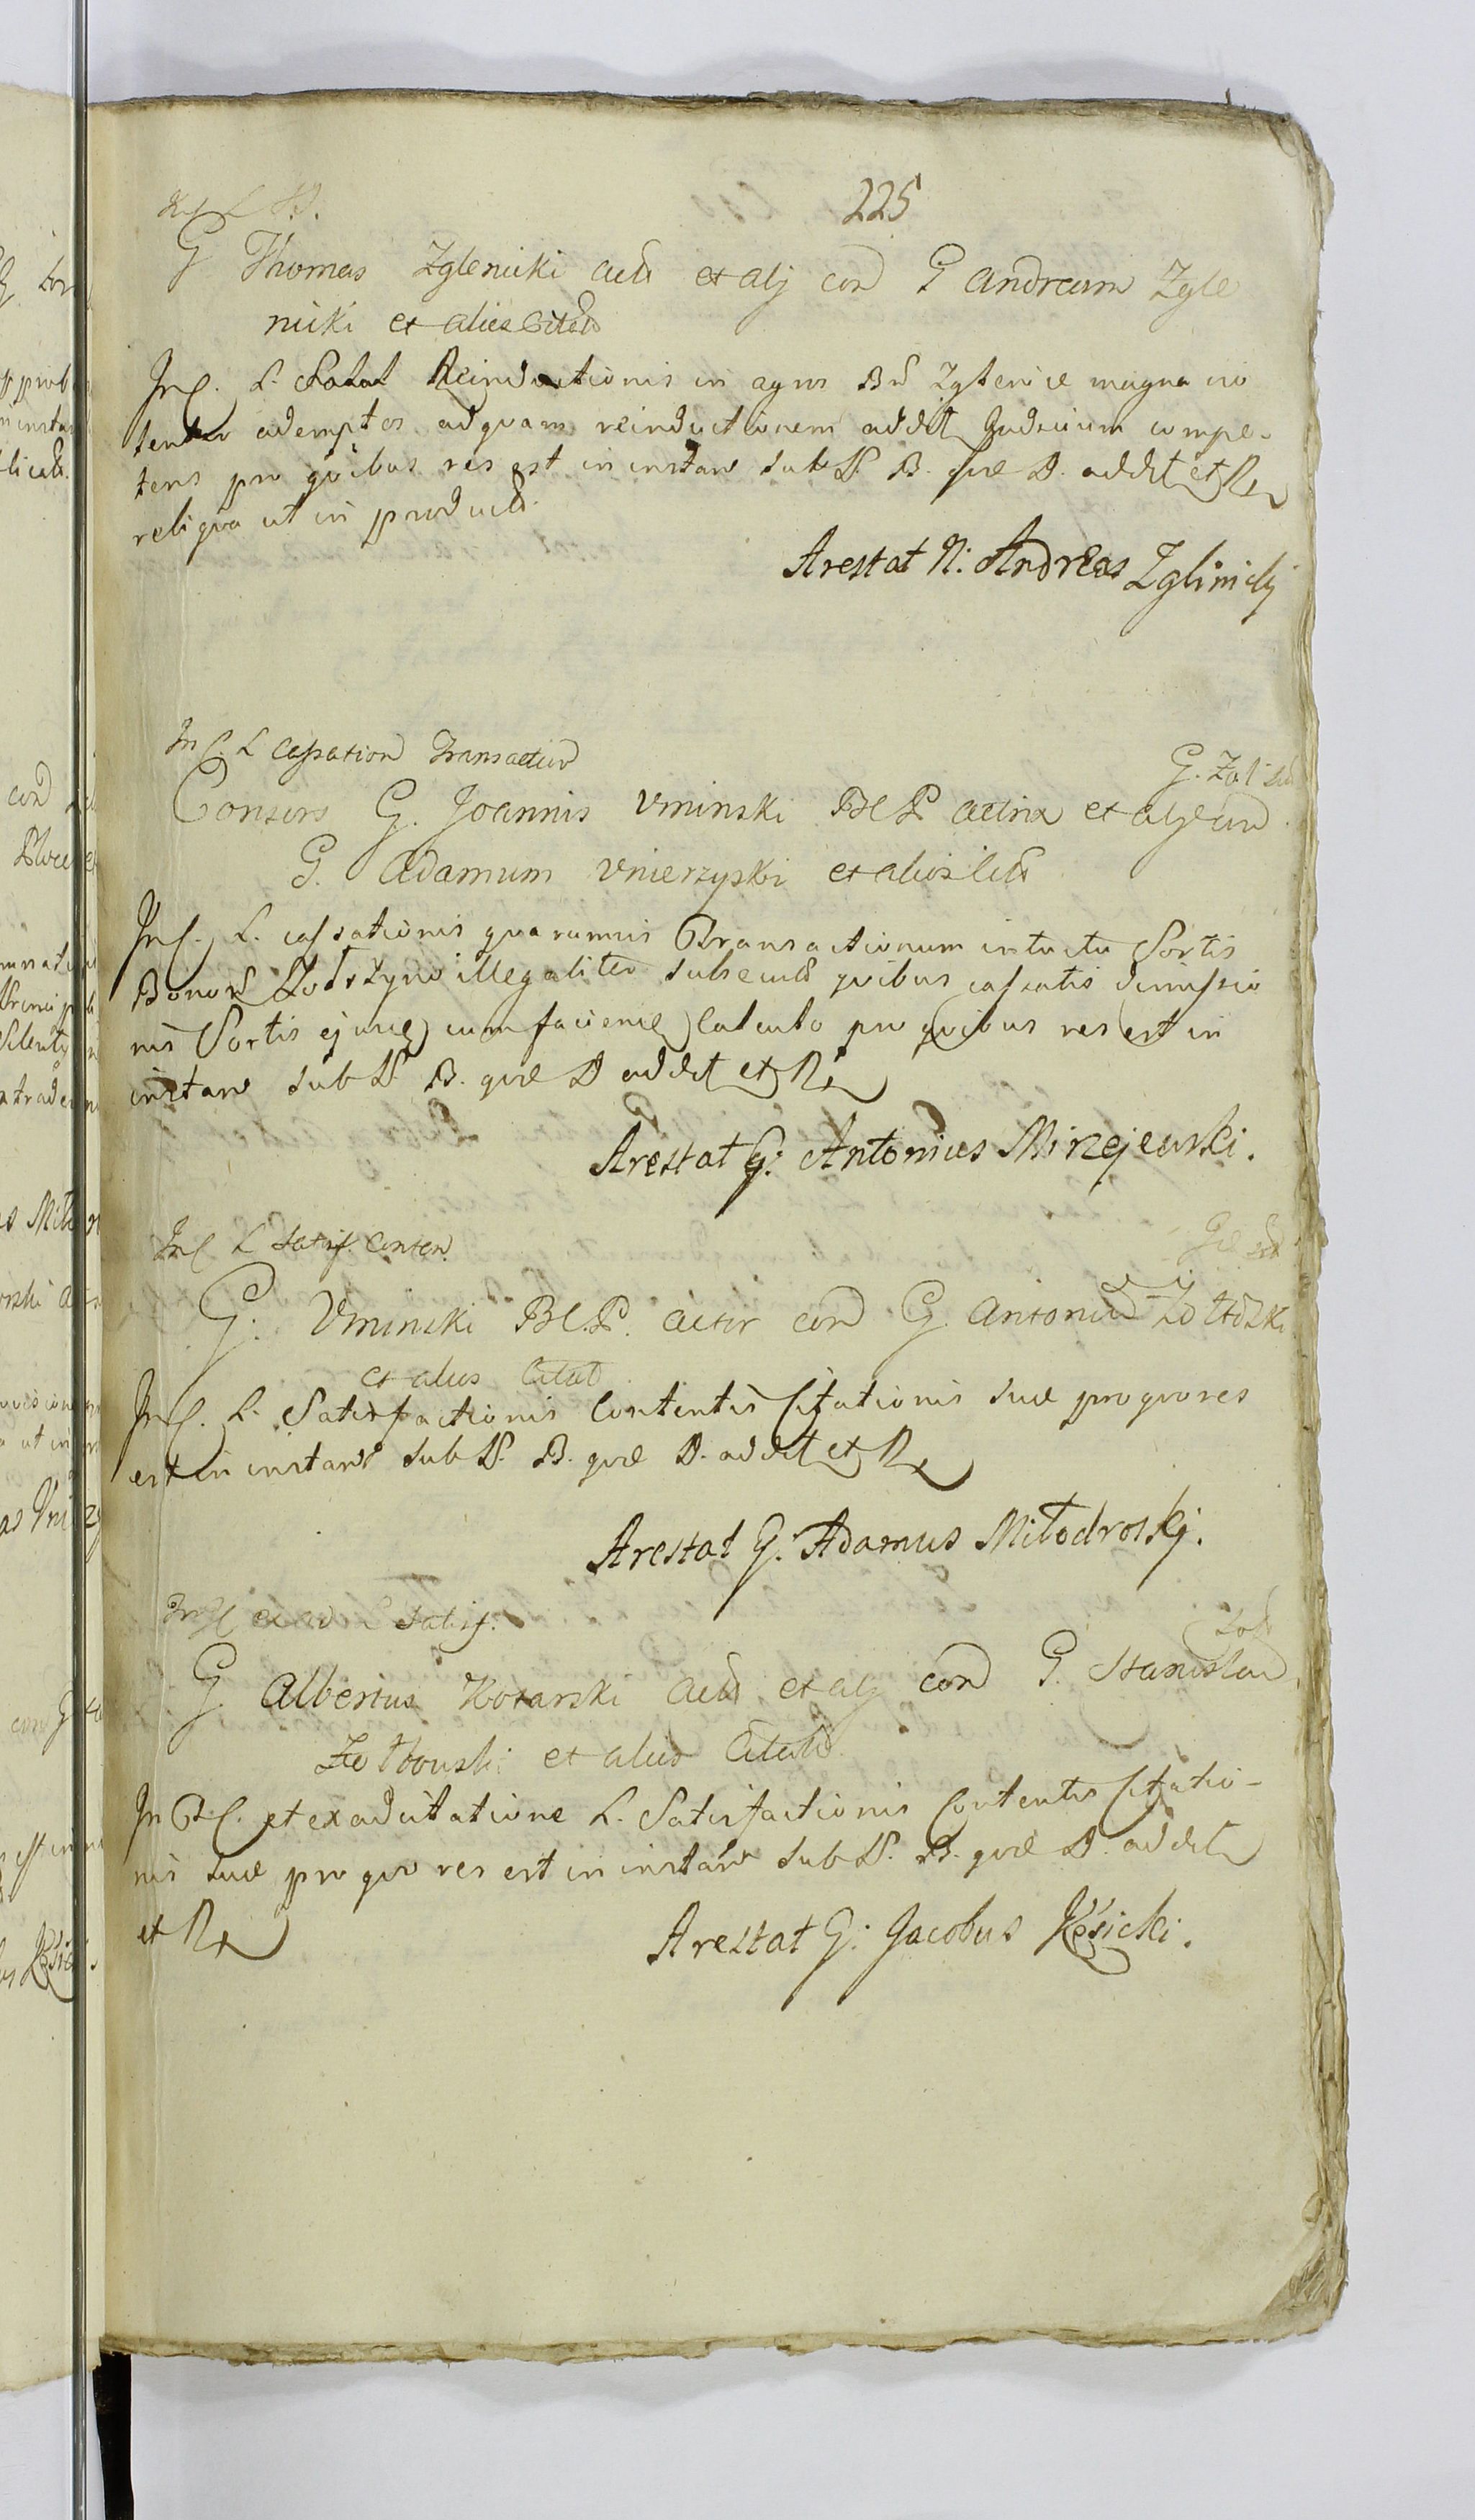 225
G Thomas Zglenicki act et alij con G Andream Zgle
nicki et alios citat
In C. L. Reinductionis in agros Bon Zglenice magna vio
lenter ademptos ad quam reinductionem addet Judicium compe-
tens pro quibus res est in instan sub L. B. quæ D. addet et R
reliqua ut in producto
Arestat N: Andreas Zglinicky
In C. L cassation Transaction
Consors G. Joannis Uminski BCP actrix et alij con
G. Adamum Unierzyski et alios cit
In C. L. cassationis quarumvis Transactionum intuitu Sortis
Bonor illegaliter subsecut quibus cassatis dimissio
nis Sortis ejusce cum faciente calculo pro quibus res est in
instan sub L. B. quæ D addet et R
Arestat G: Antonius Mirzejewski.
In C L Satisf. Conten.
G. Uminski BCP. Actor con G. Antoniu Zołtoski
et alios citat
In C. L. Satisfactionis Contentis Citationis suæ pro quo res
est in instan sub L. B. quæ D. addet et R
Arestat G. Adamus Miłodroskj.
In C ex ad L Satisf.
G Albertus Kotarski act et alij con G. Stanislau
Zołtowski et alios Citat
In C. et ex adcitatione L. Satisfactionis Contentis Citatio-
nis suæ pro quo res est in instan sub L. B. quæ D. addet
et R
Arestat G: Jacobus Kęsicki.